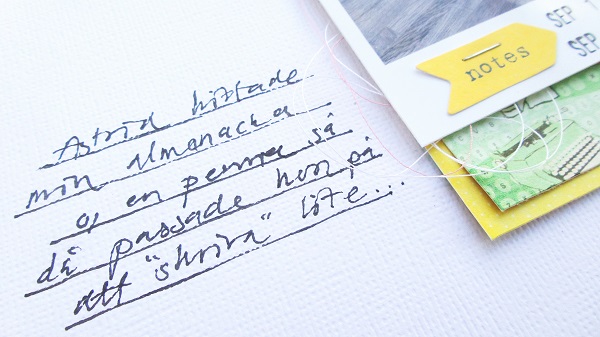 Astrid hittade
min almanacka
o, en penna så
då passade hon på
att "skriva" lite...
notes
SEP 1
SEP